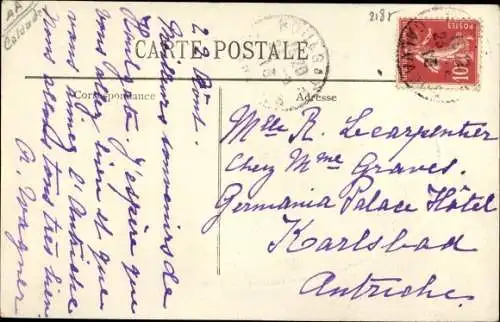 AA
Calvados
2185
CARTE POSTALE
Correspondance
Adresse
POSTES
10
22 Août.
Meilleurs souvenirs de
J'espère que
vous allez bien et que
vous aimez l'Autriche
Nous allons tous très bien
R. Wagner
Mlle R. Lecarpentier
Chez Mme Graves.
Germania Palace Hôtel
Karlsbad
Autriche.